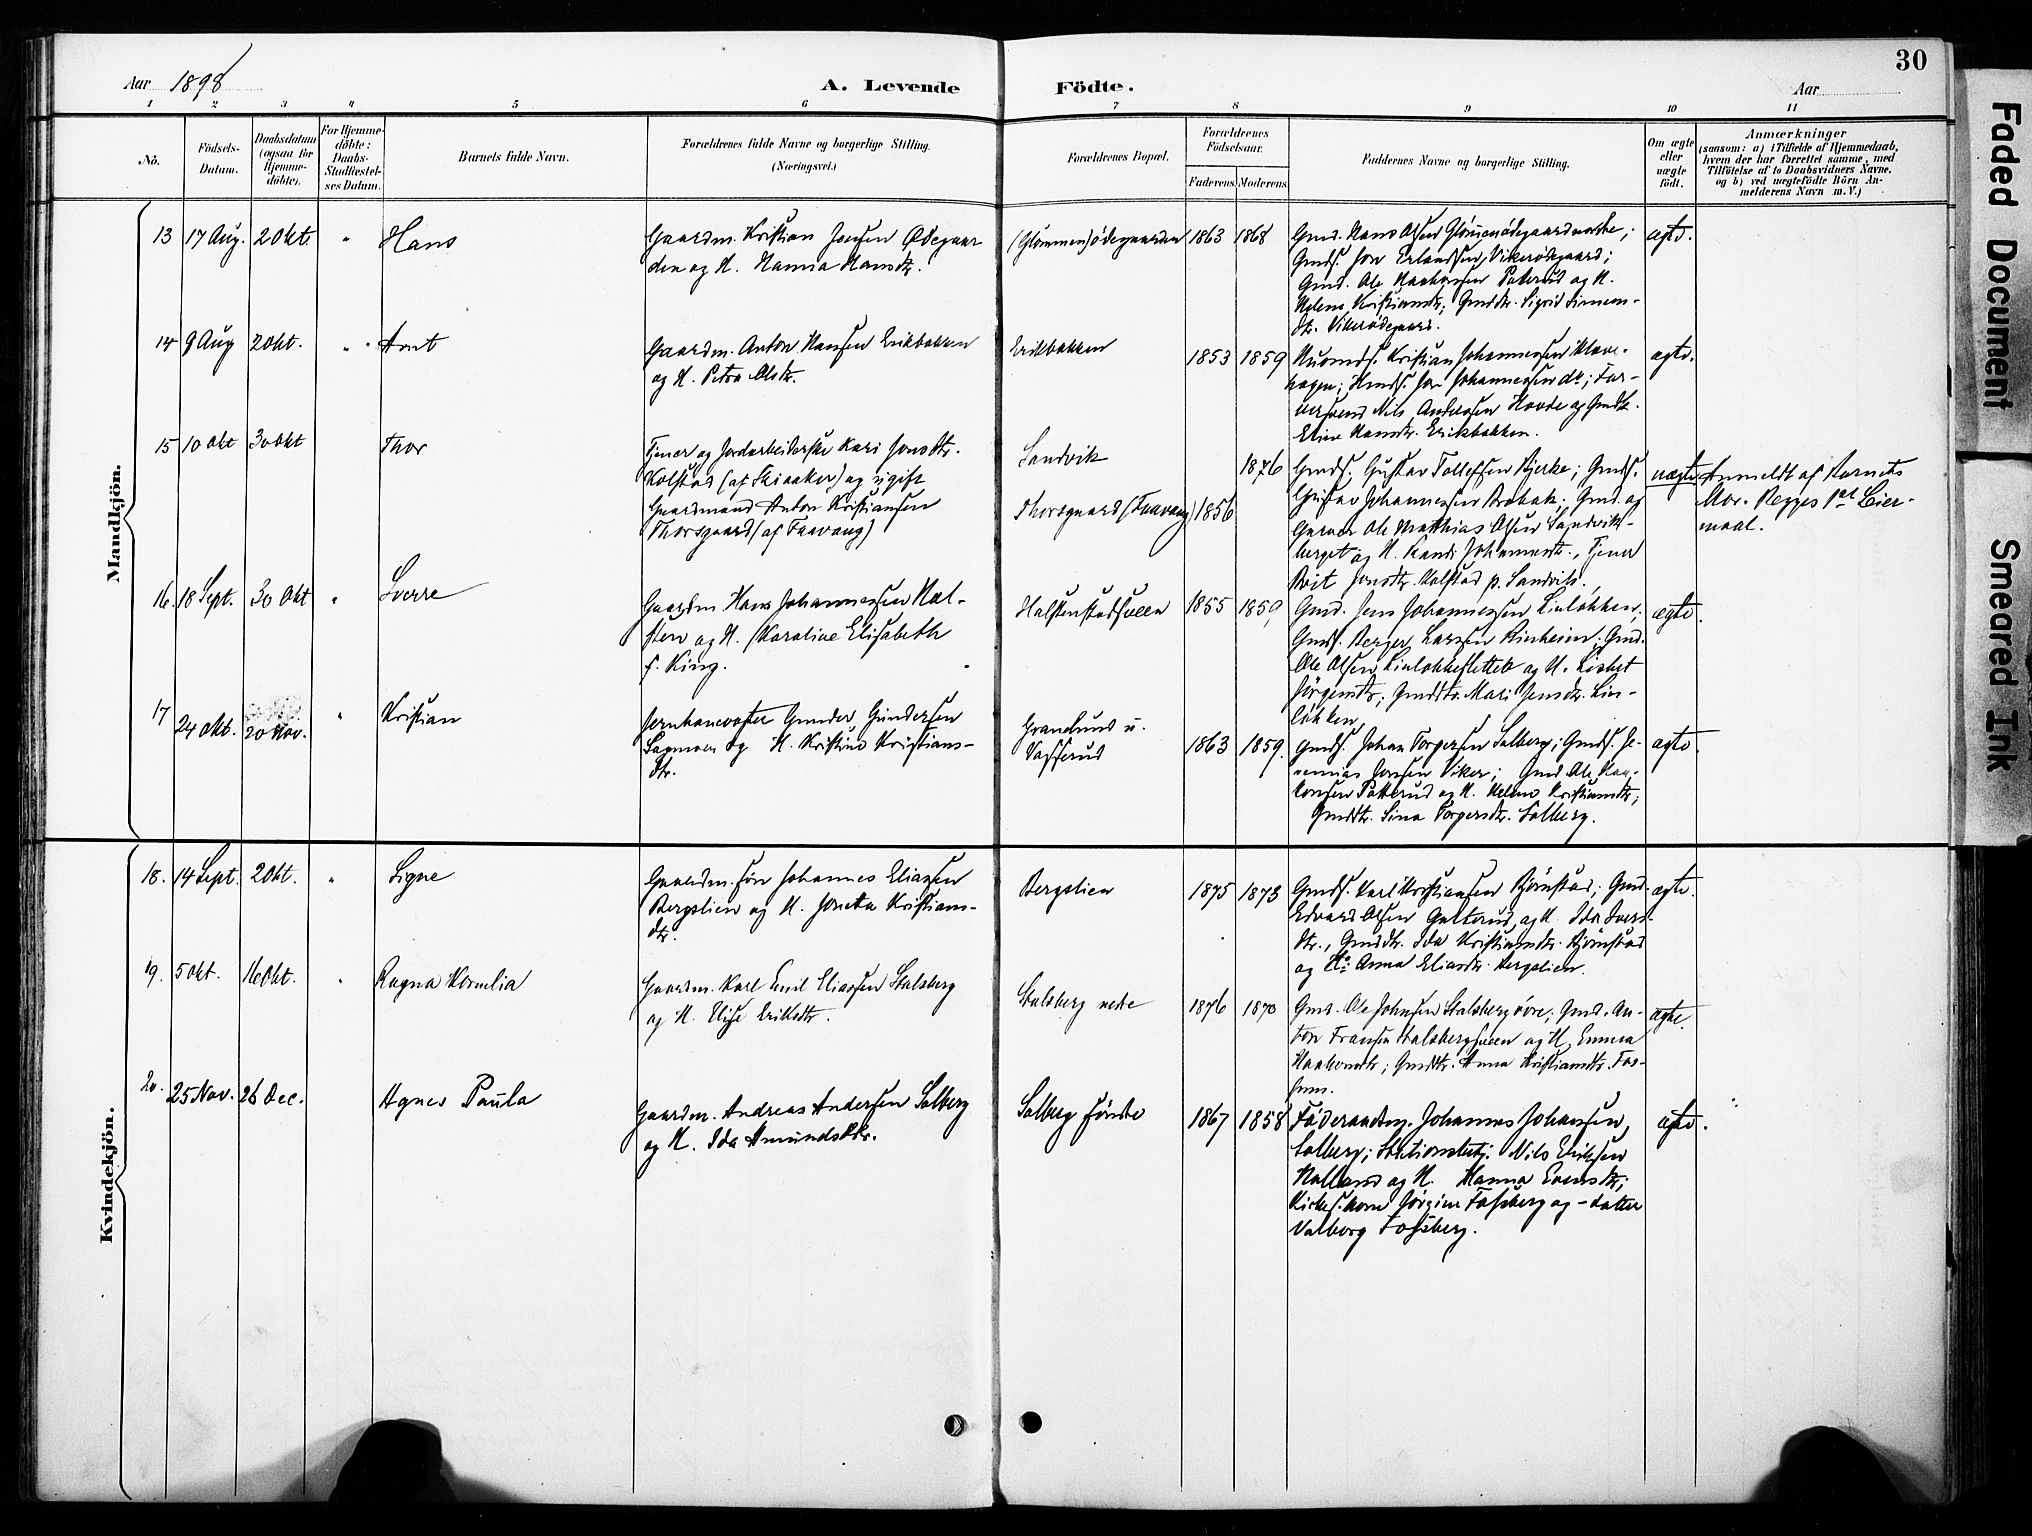 Aar 1898
A. Levende
Födte.
Aar
30
1 2 3 4 5 6 7 8 9 10 11
No.
Födsels-
Datum.
Daabsdatum
(ogsaa for
Hjemme-
döbte).
For Hjemme-
döbte:
Daabs-
Stadfæstel-
ses Datum.
Barnets fulde Navn.
Forældrenes fulde Navne og borgerlige Stilling.
(Næringsvei.)
Forældrenes Bopæl.
Forældrenes
Födselsaar.
Faderens. Moderens.
Faddernes Navne og borgerlige Stilling.
Om ægte
eller
uægte
födt.
Anmærkninger
(saasom: a) i Tilfælde af Hjemmedaab,
hvem der har forrettet samme, med
Tilföielse af to Daabsvidners Navne.
og b) ved uægtefödte Börn An-
melderens Navn m. V.)
Mandkjön.
13 17 Aug. 2 Okt. " Hans
Gaardm. Kristian Jensen Ødegaar
den og H. Hanna Hansdtr.
(Glommen) ødegaarden 1863 1868
Gmd. Hans Olsen Glommenødegaard nordre;
Gmds. Jon Erlandsen Vikerødegaard;
Gmd. Ole Haakonsen Paterud og H.
Helene Kristiansdtr; Gmddtr. Sigrid Simens-
dtr. Vikerødegaard.
ægte.
14 9 Aug 2 Okt. " Arnt
Gaardm. Anton Hansen Erikbakken
og H. Petra Olsdtr.
Erikbakken 1853 1859
Husmds. Kristian Johannessen Klove-
hagen; Hmds. Jon Johannessen do; Far-
versvend Nils Andersen Hovde og Gmdtr.
Eline Hansdtr. Erikbakken.
ægte.
15 10 Okt 30 Okt Thor
Tjener og Jordarbeiderske Kari Jonsdtr.
Kolstad (af Skiaaker) og ugift
Gaardmand Anton Kristiansen
Thorsgaard (af Faavang)
Sandvik 1876
Thorsgaard (Faavang) 1856
Gmds. Gustav Tollefsen Bjerke; Gmds.
Gustav Johannessen Brobak. Gmd. og
Garver Ole Matthias Olsen Sandvik-
berget og H. Randi Johannesdtr., Tjener
Brit Jonsdtr. Kolstad p. Sandvik.
uægte
Anmeldt af Barnets
Mor. Begges 1ste Leier-
maal.
16. 18 Sept. 30 Okt " Sverre
Gaardm Hans Johannessen Hal-
sten og H. Karoline Elisabeth
f. King.
Halstenstadsveen 1855 1859
Gmd. Jens Johannessen Linløkken;
Gmds. Berger Larsen Rinheim; Gmd.
Ole Olsen Linløkkesletten og H. Lisbet
Jörgensdtr; Gmddtr. Mari Jensdtr. Lin-
løkken.
ægte.
17 24 Okt. 20 Nov. " Kristian
Jernbanevogter Gunder Gundersen
Sagmoen og H. Kristine Kristians-
dtr.
Granelund u.
Vasserud 1863 1859.
Gmds. Johan Torgersen Solberg; Gmds. Je-
remias Jonsen Viker; Gmd Ole Haa-
konsen Patterud og H. Helene Kristiansdtr;
Gmddtr. Sina Torgersdtr. Solberg.
ægte.
Kvindekjön.
18. 14 Sept. 2 Okt. " Signe
Gaardm.søn Johannes Eliassen
Bergslien og H. Joneta Kristians-
dtr.
Bergslien 1875 1873
Gmds. Karl Kristiansen Bjørnstad; Gmd.
Edvard Olsen Galterud, og H. Ida Ivers-
dtr., Gmddtr. Ida Kristiansdtr. Bjørnstad
og Anna Eliasdtr. Bergslien.
ægte.
19. 5 Okt. 16 Okt. " Ragna Kornelia
Gaardm. Karl Emil Eliassen Stalsberg
og H. Elise Eriksdtr.
Stalsberg nedre 1876 1870
Gmd. Ole Johnsen Stalsberg øvre; Gmd. An-
ton Fransen Stalsbergsveen og H. Emma
Haakonsdtr; Gmddtr. Anna Kristiansdtr. Fos-
sum.
ægte.
20. 25 Nov. 26 Dec. Agnes Paula
Gaardm. Andreas Andersen Solberg
og H. Ida Amundsdtr.
Solberg søndre 1867 1858
Föderaadsm. Johannes Johansen,
Solberg; Stationsbetj. Nils Eriksen
Holland og H. Hanna Evensdtr;
Kirkes. kone Jørgine Fossberg og -datter
Valborg Fossberg.
ægte.
Faded Document
Smeared Ink